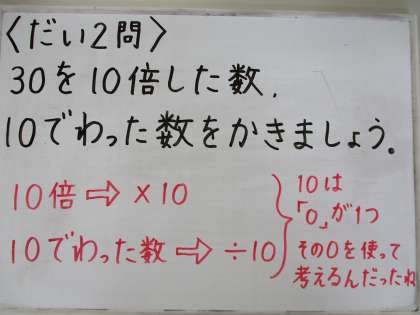 〈だい2問〉
30を10倍した数.
10でわった数をかきましょう。
10倍⇨×10
10でわった数⇨÷10
10は
「0」が1つ
その0を使って
考えるんだったね